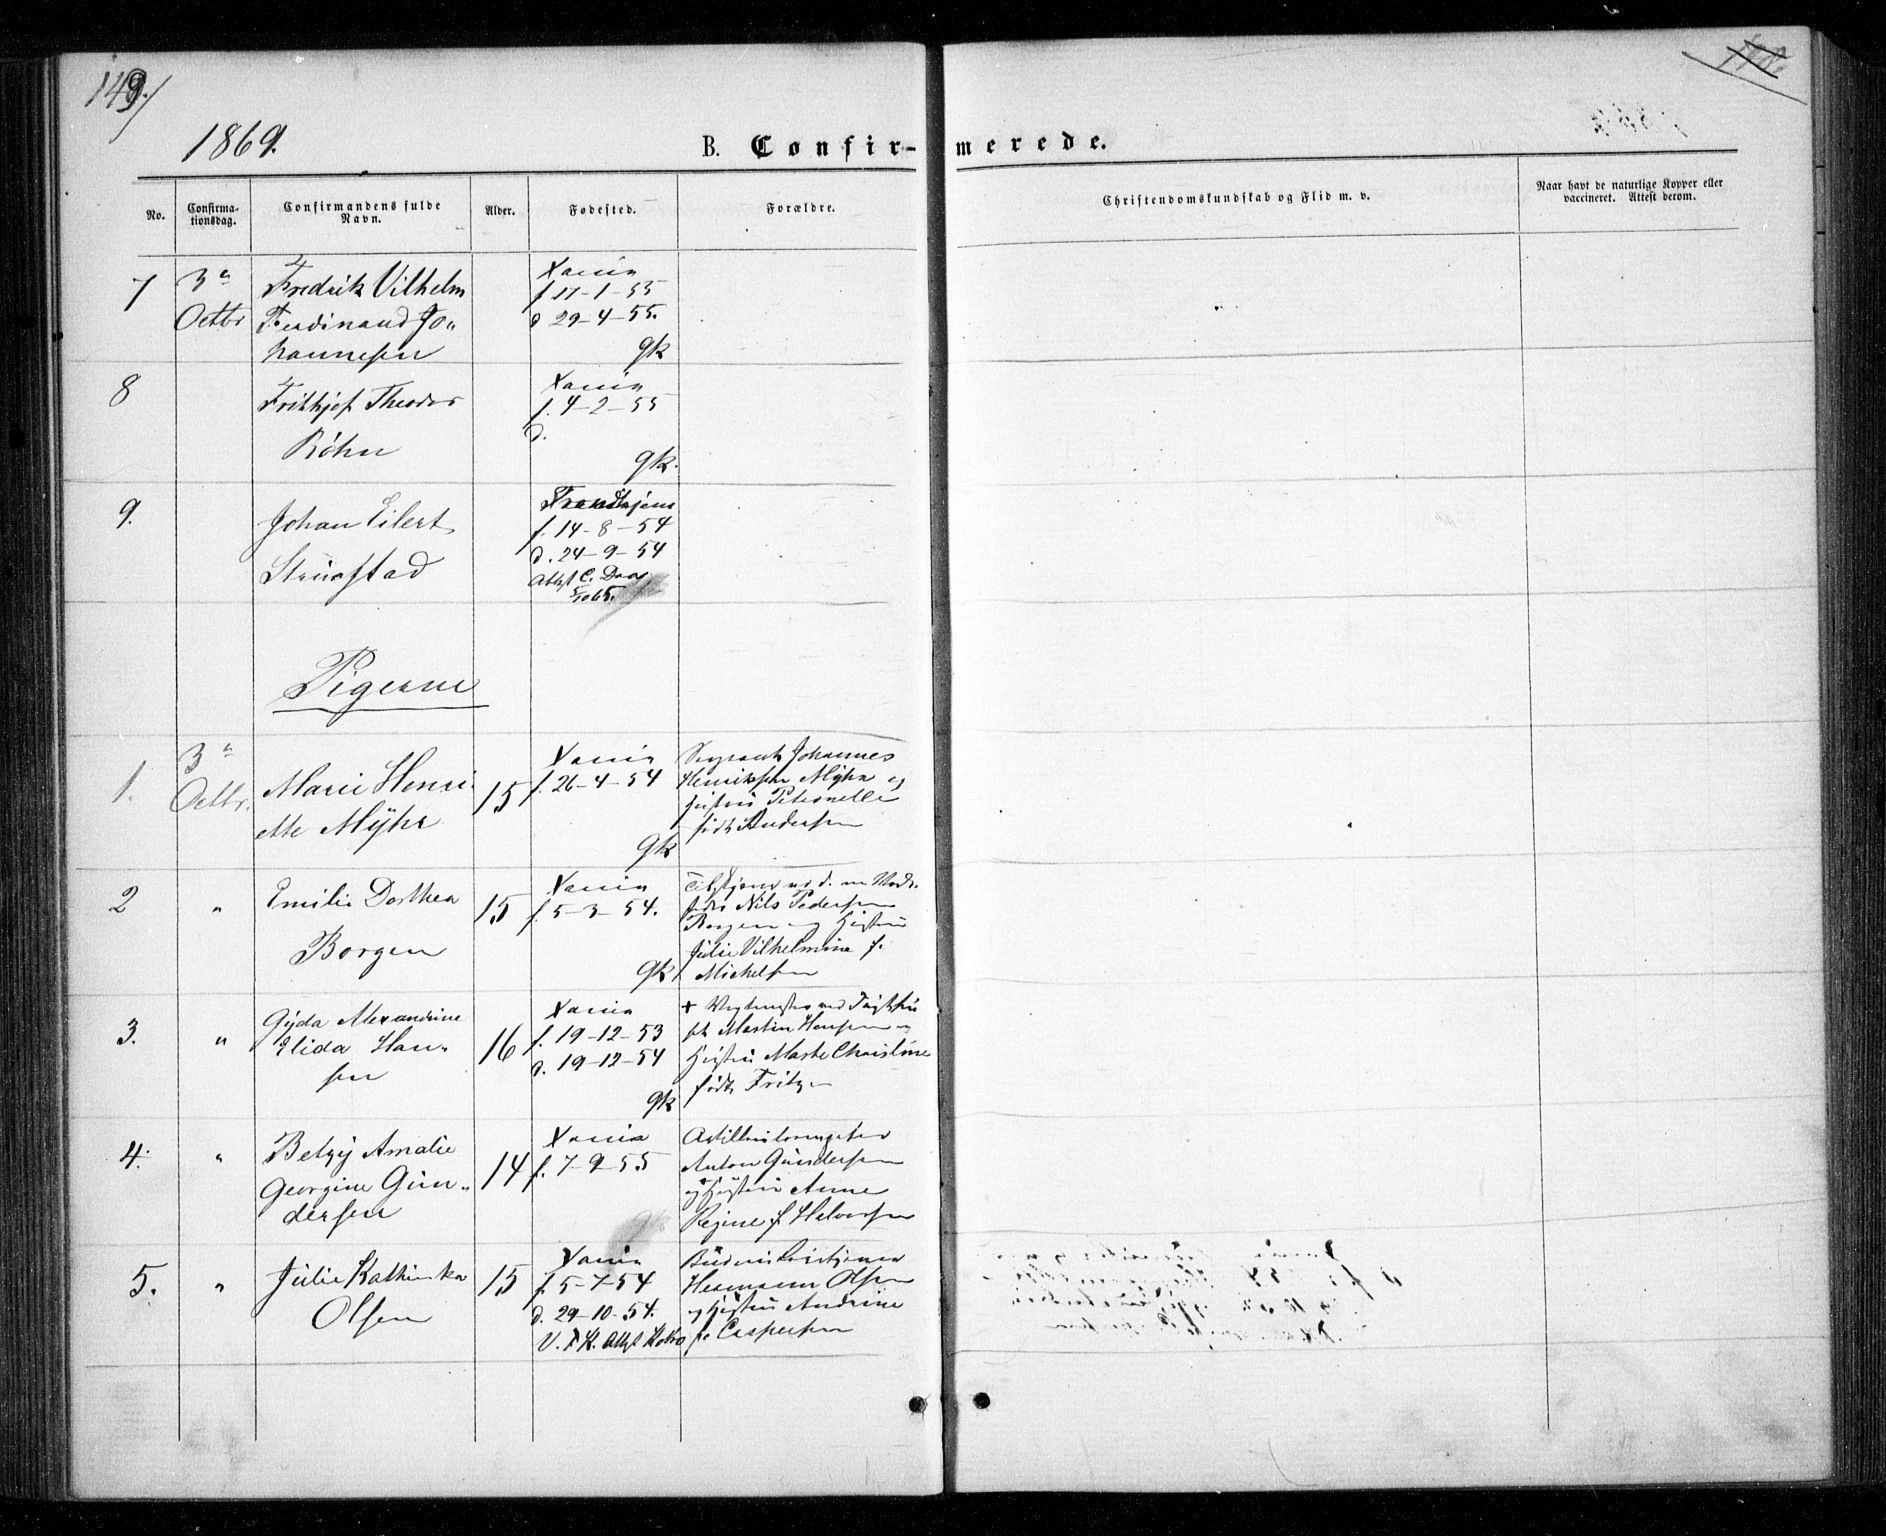 149.
1869.
B. Confir-
merede.
No.
Confirma-
tionsdag.
Confirmandens fulde
Navn.
Alder.
Fødested.
Forældre.
Christendomskundskab og Flid m. v.
Naar havt de naturlige Kopper eller
vaccineret. Attest derom.
7
3e
Octbr
Fredrik Vilhelm
Ferdinand Jo„
hannesen
Xania
f 17-1-55
d 29-4-55.
gk
8
Frithjof Theodor
Röhn
Xania
f. 4-2-55
d.
gk.
9.
Johan Eilert
Struvstad
Trondhjem
f. 14-8-54
d. 24-9-54
Attest C. Daa
Pigerne
1.
3e
Octbr.
Marie Henri-
ette Myhr
15
Xania
f. 26-4-54
gk
Johannes
Henriksen Myhr og
Hustru Peternelle
født Andersen
2
„
Emilie Dorthea
Borgen
15
Xania
f. 5-3-54.
gk
Nils Pedersen
Borgen og Hustru
Julie Vilhelmine f.
Michelsen
3.
„
Gyda Alexandrine
Elida Han„
sen
16
Xania
f. 19-12-53
d. 19-12-54
gk
+
Martin Hansen og
Hustru Marte Christine
født Fritz
4.
„
Betzy Amalie
Georgine Gun„
dersen
14
Xania
f. 7-9-55
gk
Anton Gundersen
og Hustru Anne
Regine f Halvorsen
5.
„
Julie Kathinka
Olsen
15
Xania
f. 5-7-54
d. 29-10-54.
V. F K. Attest
Hermann Olsen
og Hustru Andrine
f. Caspersen